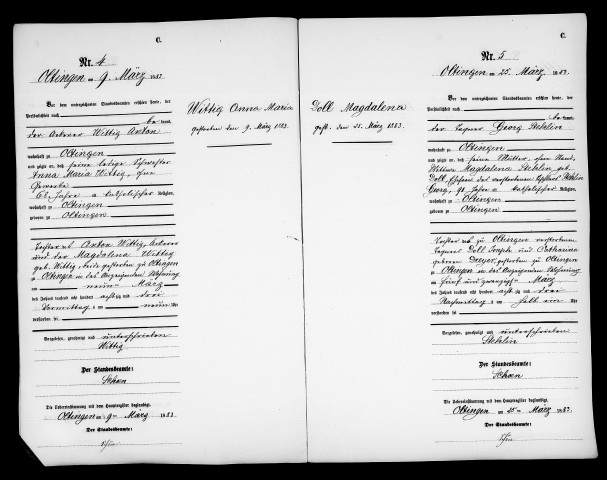 C.
Nr. 4
Oltingen am 9. März 1883
Vor dem unterzeichneten Standesbeamten erschien heute, der
Persönlichkeit nach
be kannt,
der Ackerer Wittig Anton
wohnhaft zu Oltingen
und zeigte an, daß seine ledige Schwester
Anna Maria Wittig, ohne
Gewerbe
Jahre a katholischer Religion,
wohnhaft zu Oltingen
geboren zu Oltingen
Tochter des Anton Wittig, Ackerer
und der Magdalena Wittig
geb. Wittig, beide gestorben zu Oltingen
zu Oltingen in des Anzeigenden Wohnung
am neun März
des Jahres tausend achthundert achtzig und drei
Vormittag s um neun Uhr
verstorben sei
Vorgelesen, genehmigt und unterschrieben
Wittig
Der Standesbeamte:
Schoen
Die Uebereinstimmung mit dem Hauptregister beglaubigt.
Oltingen am 9ten März 1883
Der Standesbeamte:
Wittig Anna Maria
gestorben den 9. März 1883.
C.
Nr. 5
Oltingen am 25. März 1883.
Doll Magdalena
gest. den 25. März 1883.
Vor dem unterzeichneten Standesbeamten erschien heute, der
Persönlichkeit nach
be kannt,
der Tagner Georg Stehlin
wohnhaft zu Oltingen
und zeigte an, daß seine Mutter, ohne Stand,
Wittwe Magdalena Stehlin geb.
Doll, Ehefrau des verstorbenen Stehlin
Georg, Jahre a katholischer Religion,
wohnhaft zu Oltingen
geboren zu Oltingen
Tochter des zu Oltingen verstorbenen
Tagner Doll Joseph und Catharina
geborene Meyer, gestorben zu Oltingen
zu Oltingen in des Anzeigenden Wohnung
am fünf und zwanzigsten März
des Jahres tausend achthundert achtzig und drei
Nachmittag s um halb ein Uhr
verstorben sei
Vorgelesen, genehmigt und unterschrieben
Stehlin
Der Standesbeamte:
Schoen
Die Uebereinstimmung mit dem Hauptregister beglaubigt.
Oltingen am 25ten März 1883.
Der Standesbeamte: